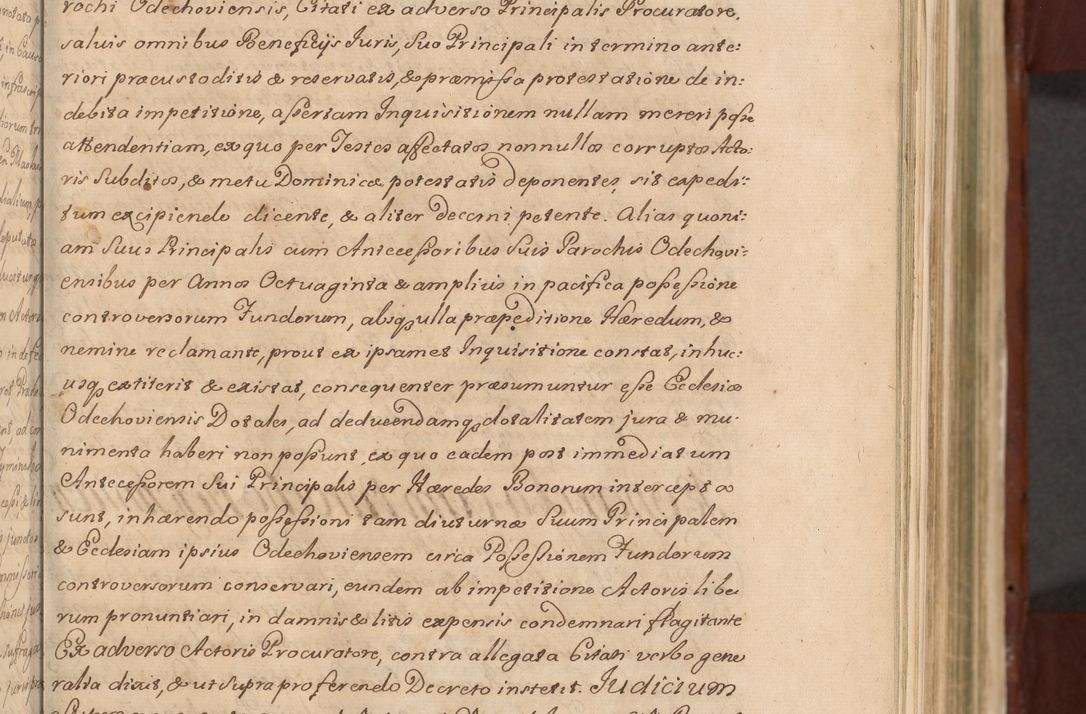 rochi Odechoviensis, Citati ex adverso Principalis Procuratore,
salvis omnibus Beneficijs Juris, Suo Principali in termino ante:
riori præcustoditis & reservatis, & præmissa protestatione de in:
debita impetitione, assertam Inquisitionem nullam mereri posse
attendentiam, ex quo per Testes affectatos nonnullos corruptos Acto:
ris Subditos, & metu Dominicæ potestatis deponentes, sit expedi:
tum excipiendo dicente, & aliter decerni petente. Alias quoni:
am Suus Principalis cum Antecessoribus Suis Parochis Odechovi:
ensibus per Annos Octuaginta & amplius in pacifica possessione
controversorum Fundorum, absq ulla præpeditione Hæredum, &
nemine reclamante, prout ex ipsamet Inquisitione constat, inhuc:
usq extiterit & existat, consequenter præsumuntur esse Ecclesiæ
Odechoviensis Dotales, ad deducendamq dotalitatem jura & mu:
nimenta haberi non possunt, ex quo eadem post immediatum
Antecessorem Sui Principalis per Hæredes Bonorum intercepta
sunt, inhærendo possessioni tam diuturnæ Suum Principalem
& Ecclesiam ipsius Odechoviensem circa Possessionem Fundorum
controversorum conservari, eundem ab impetitione Actoris libe
rum pronuntiari, in damnis & litis expensis condemnari flagitante
Ex adverso Actoris Procuratore, contra allegata Citati verbo gene
ralia dixit, & ut supra pro ferendo Decreto institit. Judicium